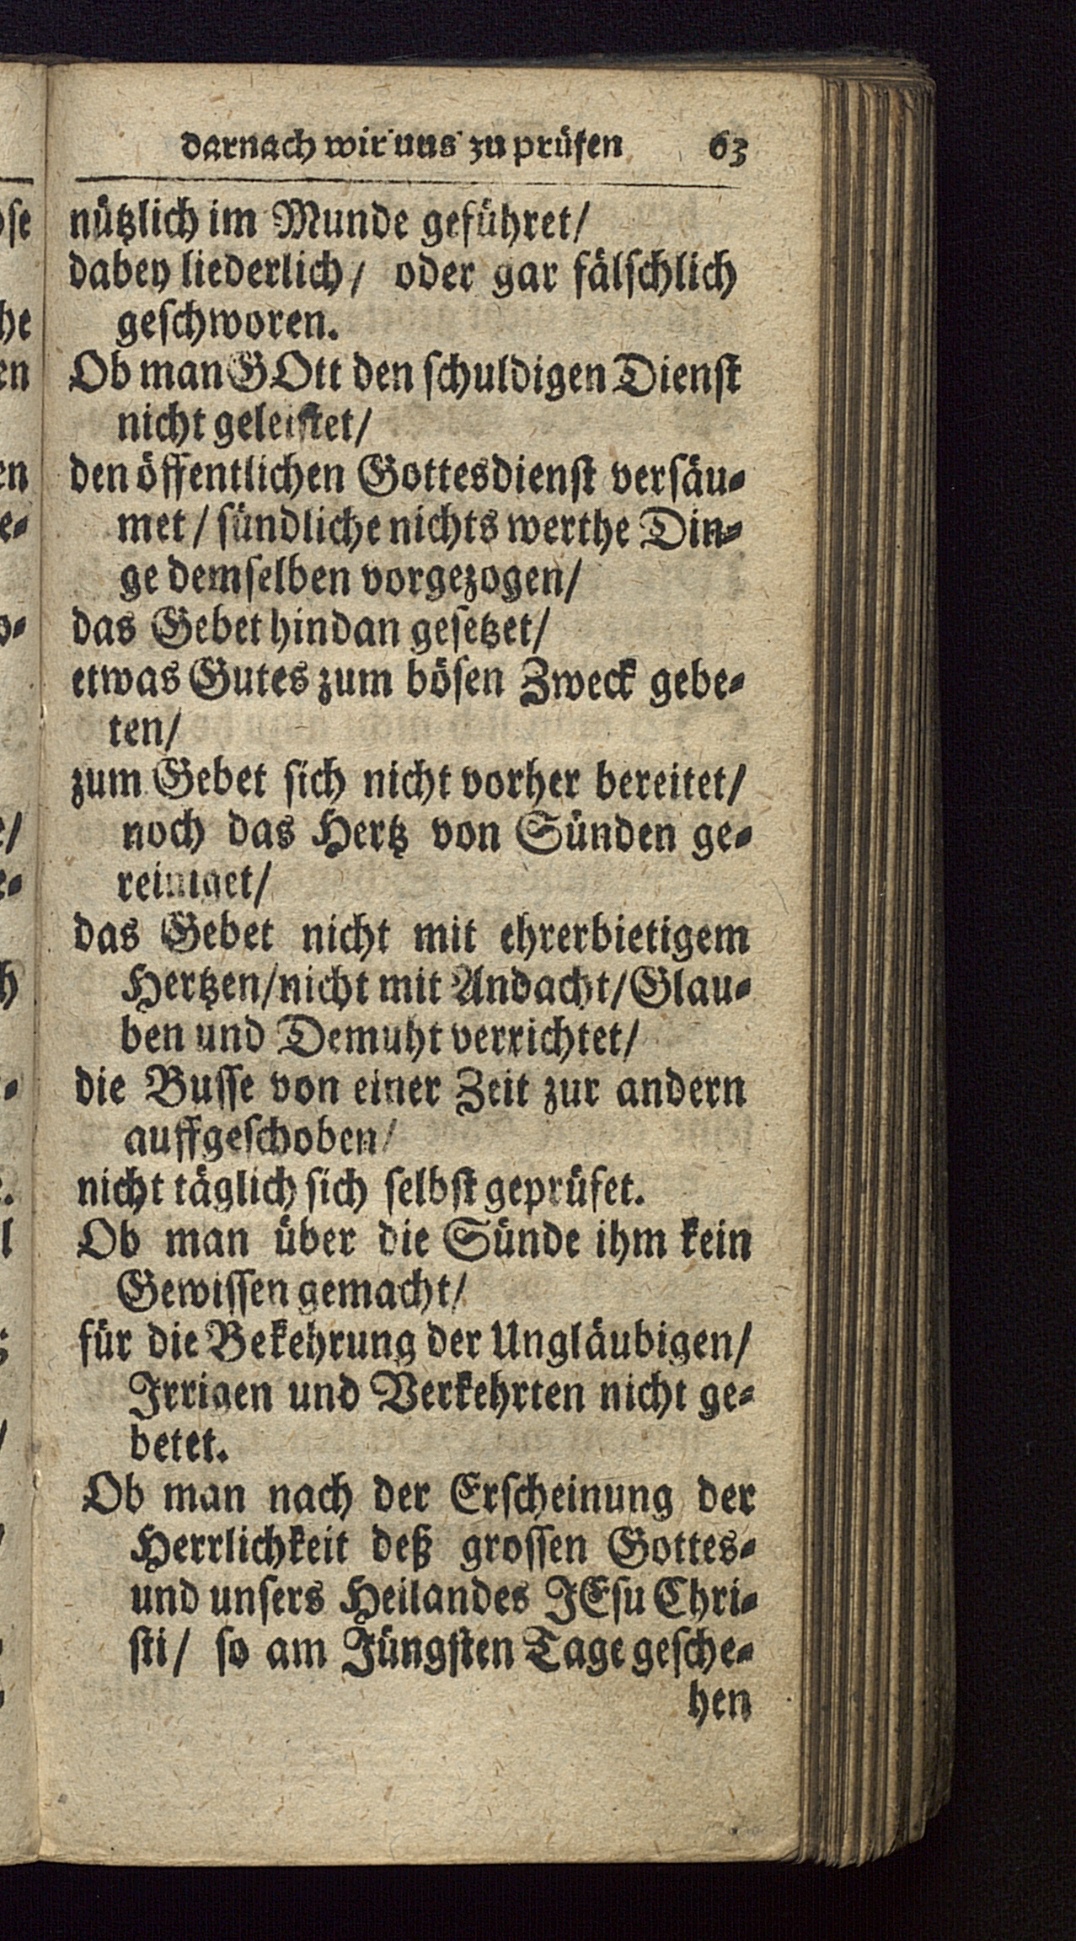 darnach wir uns zu prüfen 63
nützlich im Munde geführet/
dabey liederlich/ oder gar fälschlich
geschworen.
Ob man GOtt den schuldigen Dienst
nicht geleistet/
den öffentlichen Gottesdienst versäu-
met/ sündliche nichts werthe Din-
ge demselben vorgezogen/
das Gebet hindan gesetzet/
etwas Gutes zum bösen Zweck gebe-
ten/
zum Gebet sich nicht vorher bereitet/
noch das Hertz von Sünden ge-
reiniget/
das Gebet nicht mit ehrerbietigem
Hertzen/nicht mit Andacht/Glau-
ben und Demuht verrichtet/
die Busse von einer Zeit zur andern
auffgeschoben/
nicht täglich sich selbst geprüfet.
Ob man über die Sünde ihm kein
Gewissen gemacht/
für die Bekehrung der Ungläubigen/
Irrigen und Verkehrten nicht ge-
betet.
Ob man nach der Erscheinung der
Herrlichkeit deß grossen Gottes-
und unsers Heilandes JEsu Chri-
sti/ so am Jüngsten Tage gesche-
hen